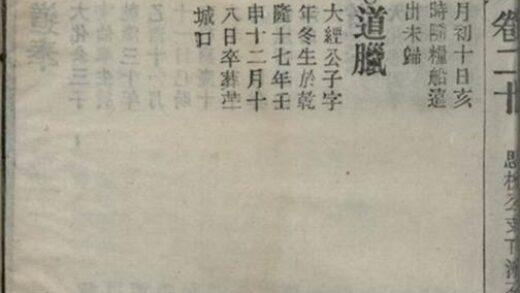 卷二十
公支下派
月初十日亥
時隨糧船遠
出未歸
道臘
大經公子字
年冬生於乾
隆十七年壬
申十二月十
八日卒葬塋
城口